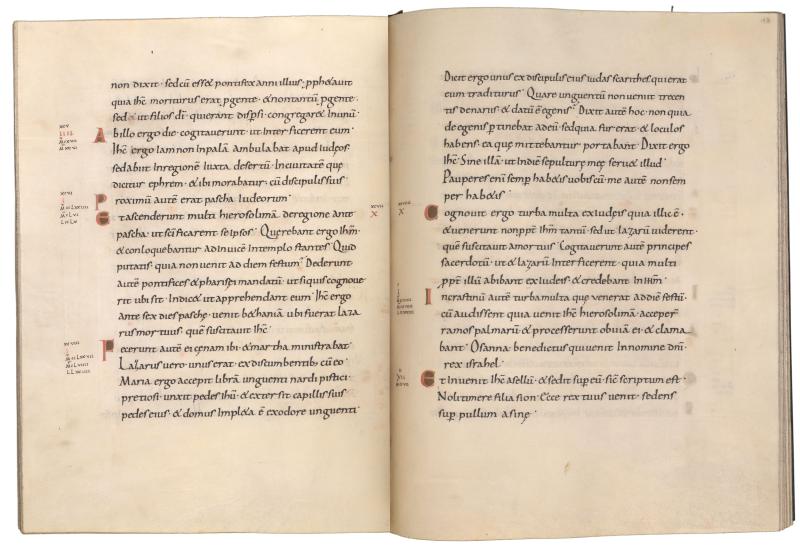 non dixit · sed cū esset pontifex anni illius · pphetauit
quia ihc̄ moriturus erat pgente · & non tantū pgente ·
sed & ut filios dī · quierant dispsi · congregaret Inunū ·
Abillo ergo die · cogitauerunt · ut Inter ficerent eum ·
Ihc̄ ergo Iam non Inpalā ambulabat apud Iudeos ·
sed abiit Inregionē Iuxta desertū · Inciuitatē quę
dicitur ephrem · & ibi morabatur · cū discipulis suis ·
Proximū autē erat pascha Iudeorum ·
Et ascenderunt multi hierosolimā · deregione ante
pascha · ut sc̄ificarent seipsos · Querebant ergo ihm̄ ·
& conloquebantur adinuicē Intemplo stantes · Quid
putatis · quia non uenit ad diem festum · Dederunt
autē pontifices & pharisei mandatū · ut siquis cognoue
rit ubi sit · Indicet ut apprehendant eum · Ihc̄ ergo
ante sex dies paschę · uenit bethaniā ubi fuerat laza
rus mortuus · quē suscitauit ihc̄ ·
Fecerunt autē ei cenam ibi · & martha ministrabat
Lazarus uero unus erat exdiscumbentibȝ cū eo ·
Maria ergo accepit librā unguenti nardi pistici ·
pretiosi · unxit pedes ihū · & extersit capillis suis
pedes eius · & domus Impleta ē exodore unguenti ·
Dicit ergo unus ex discipulis eius iudas scariothes qui erat
eum traditurus · Quare unguentū non uenit trecen
tis denariis · & datū ē egenis · Dixit autē hoc · non quia
de egenis ptinebat adeū · sed quia fur erat · & loculos
habens · ea quę mittebantur portabat · Dixit ergo
ihc̄ · Sine illā · ut Indiē sepulturę meę seruet illud ·
Pauperes enī semp habetis uobiscū · me autē non sem
per habetis ·
Cognouit ergo turba multa exIudeis quia illic ē ·
& uenerunt nonppt̄ ihm̄ tantū · sed ut lazarū uiderent ·
quē suscitauit amortuis · Cogitauerunt autē principes
sacerdotū · ut & lazarū Interficerent · quia multi
ppt̄ illū abibant exIudeis · & credebant Inihm̄ ·
Incrastinū autē turba multa quę uenerat addiē festū ·
cū audissent quia uenit ihc̄ hierosolimā · acceper̄
ramos palmarū · & processerunt obuiā ei · & clama
bant · Osanna · benedictus qui uenit Innomine dnī ·
rex israhel ·
Et Inuenit ihc̄ asellū · & sedit sup eū · sic̄ scriptum est ·
Noli timere filia sion · Ecce rex tuus uenit · sedens
sup pullum asinę ·